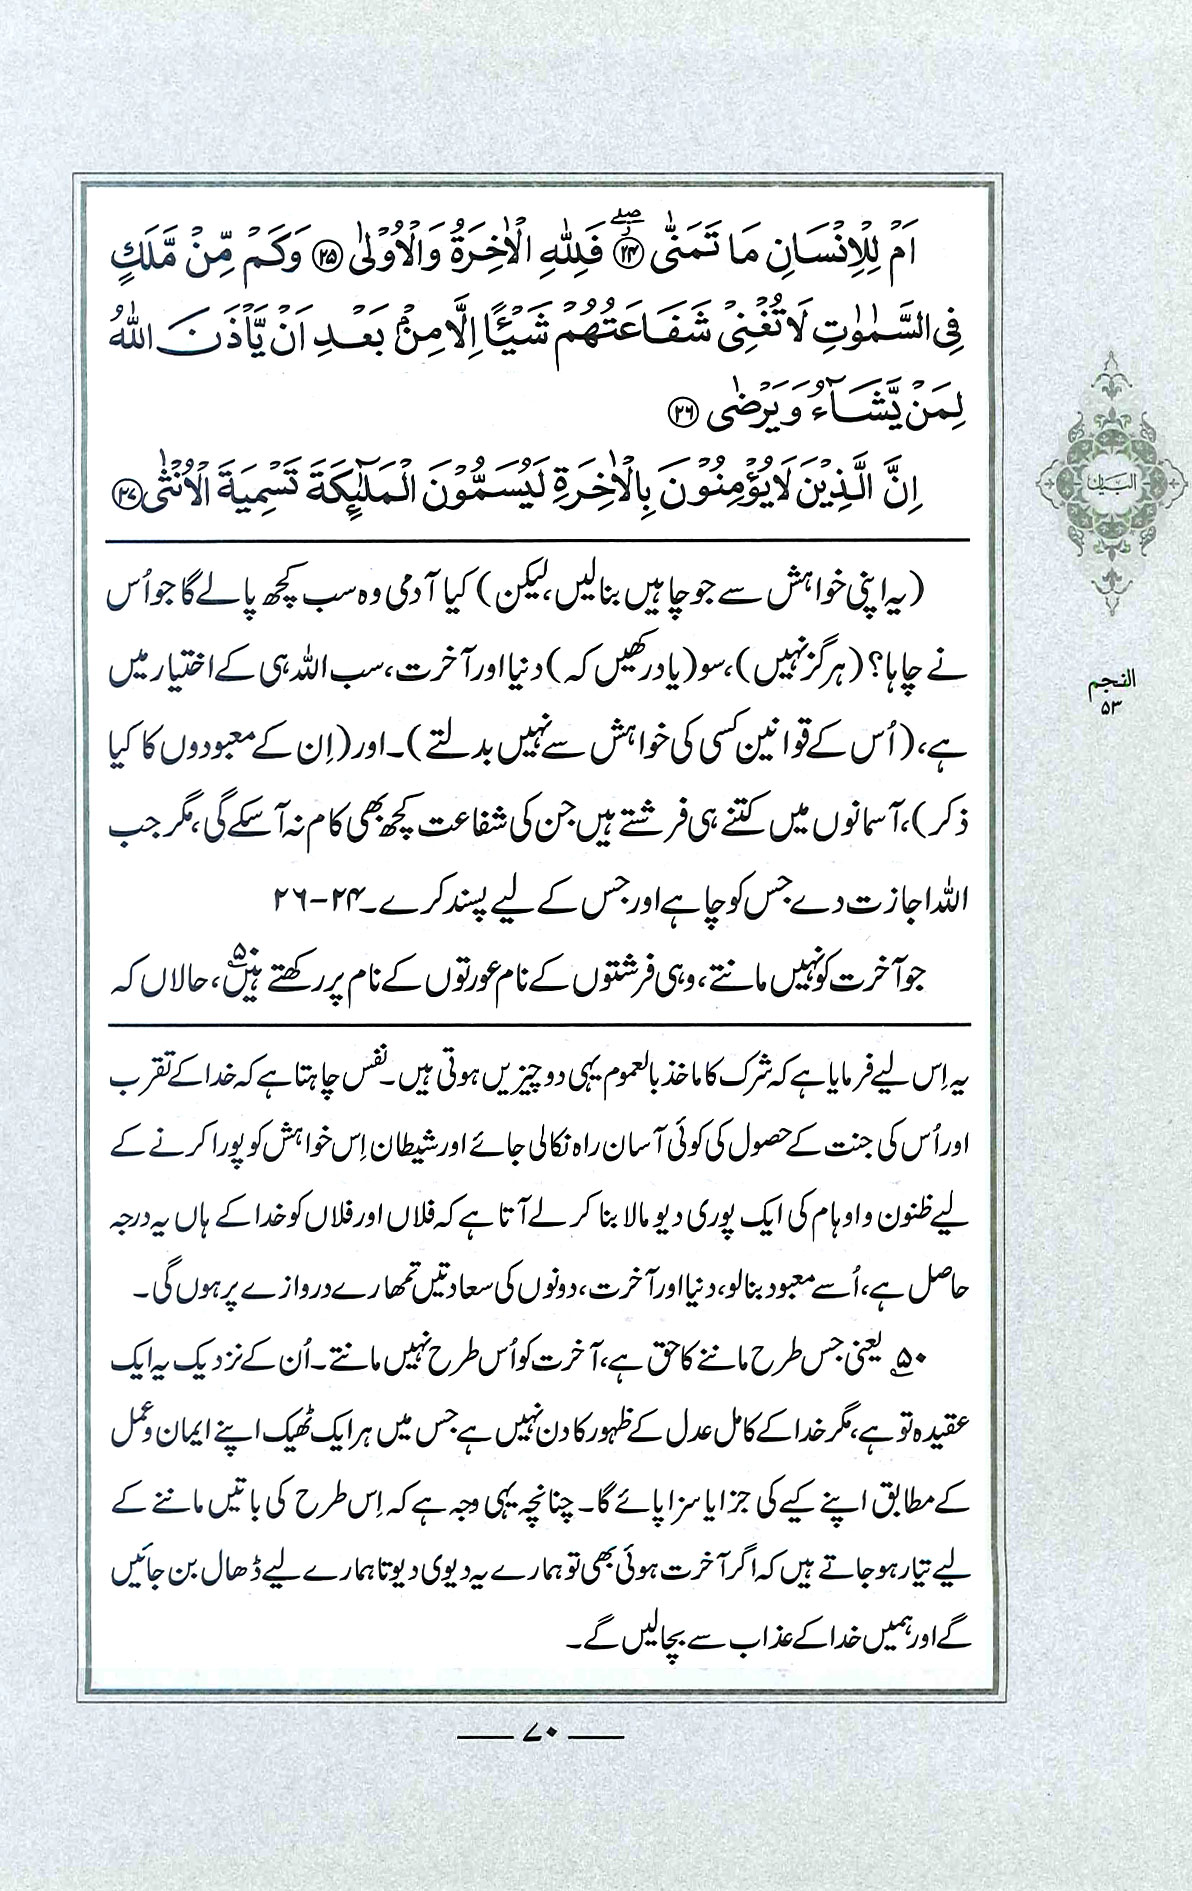 اَمْ لِلْاِنْسَانِ مَا تَمَنّٰى ﴿۲۴﴾ۖ فَلِلّٰهِ الْاٰخِرَةُ وَالْاُوْلٰى ﴿۲۵﴾ وَكَمْ مِّنْ مَّلَكٍ
فِى السَّمٰوٰتِ لَا تُغْنِىْ شَفَاعَتُهُمْ شَيْـًٔا اِلَّا مِنْۢ بَعْدِ اَنْ يَّاْذَنَ اللّٰهُ
لِمَنْ يَّشَآءُ وَيَرْضٰى ﴿۲۶﴾
اِنَّ الَّذِيْنَ لَا يُؤْمِنُوْنَ بِالْاٰخِرَةِ لَيُسَمُّوْنَ الْمَلٰٓئِكَةَ تَسْمِيَةَ الْاُنْثٰى ﴿۲۷﴾
(یہ اپنی خواہش سے جو چاہیں بنا لیں، لیکن) کیا آدمی وہ سب کچھ پا لے گا جو اُس
نے چاہا؟ (ہرگز نہیں)، سو (یاد رکھیں کہ) دنیا اور آخرت، سب اللہ ہی کے اختیار میں
ہے، (اُس کے قوانین کسی کی خواہش سے نہیں بدلتے)۔ اور (اِن کے معبودوں کا کیا
ذکر)، آسمانوں میں کتنے ہی فرشتے ہیں جن کی شفاعت کچھ بھی کام نہ آ سکے گی، مگر جب
اللہ اجازت دے جس کو چاہے اور جس کے لیے پسند کرے۔ ۲۴-۲۶
جو آخرت کو نہیں مانتے، وہی فرشتوں کے نام عورتوں کے نام پر رکھتے ہیں۵۰، حالاں کہ
یہ اِس لیے فرمایا ہے کہ شرک کا ماخذ بالعموم یہی دو چیزیں ہوتی ہیں۔ نفس چاہتا ہے کہ خدا کے تقرب
اور اُس کی جنت کے حصول کی کوئی آسان راہ نکالی جائے اور شیطان اِس خواہش کو پورا کرنے کے
لیے ظنون و اوہام کی ایک پوری دیو مالا بنا کر لے آتا ہے کہ فلاں اور فلاں کو خدا کے ہاں یہ درجہ
حاصل ہے، اُسے معبود بنا لو، دنیا اور آخرت، دونوں کی سعادتیں تمھارے دروازے پر ہوں گی۔
۵۰ یعنی جس طرح ماننے کا حق ہے، آخرت کو اُس طرح نہیں مانتے۔ اُن کے نزدیک یہ ایک
عقیدہ تو ہے، مگر خدا کے کامل عدل کے ظہور کا دن نہیں ہے جس میں ہر ایک ٹھیک اپنے ایمان و عمل
کے مطابق اپنے کیے کی جزا یا سزا پائے گا۔ چنانچہ یہی وجہ ہے کہ اِس طرح کی باتیں ماننے کے
لیے تیار ہو جاتے ہیں کہ اگر آخرت ہوئی بھی تو ہمارے یہ دیوی دیوتا ہمارے لیے ڈھال بن جائیں
گے اور ہمیں خدا کے عذاب سے بچا لیں گے۔
البیان
النجم
۵۳
۷۰